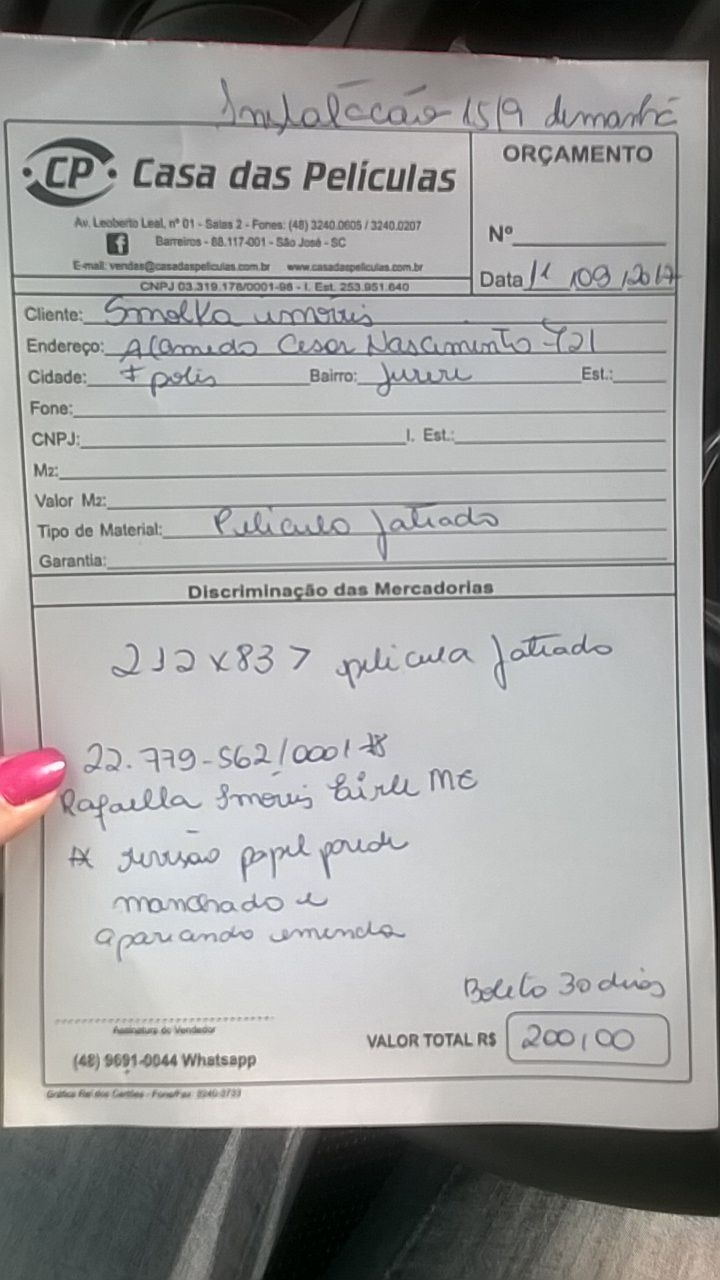 Instalação 15/9 de manhã
CP Casa das Películas
ORÇAMENTO
Av. Leoberto Leal, nº 01 - Salas 2 - Fones: (48) 3240.0605 / 3240.0207
Barreiros - 88.117-001 - São José - SC
E-mail: vendas@casadaspeliculas.com.br www.casadaspeliculas.com.br
CNPJ 03.319.178/0001-98 - I. Est. 253.951.640
Nº
Data 11 / 09 / 2017
Cliente: Smolka imóveis
Endereço: Alameda Cesar Nascimento 721
Cidade: Fpolis Bairro: Jurere Est.:
Fone:
CNPJ: I. Est.:
M2:
Valor M2:
Tipo de Material: Pelicula Jatiado
Garantia:
Discriminação das Mercadorias
212 x 83 > pelicula Jatiado
22.779-562/0001
Rafaella Imóveis Eirele ME
revisão papel parede
manchado e
apariando emenda
Boleto 30 dias
Assinatura do Vendedor
VALOR TOTAL R$ 200,00
(48) 9691-0044 Whatsapp
Gráfica Rei dos Cartões - Fone/Fax: